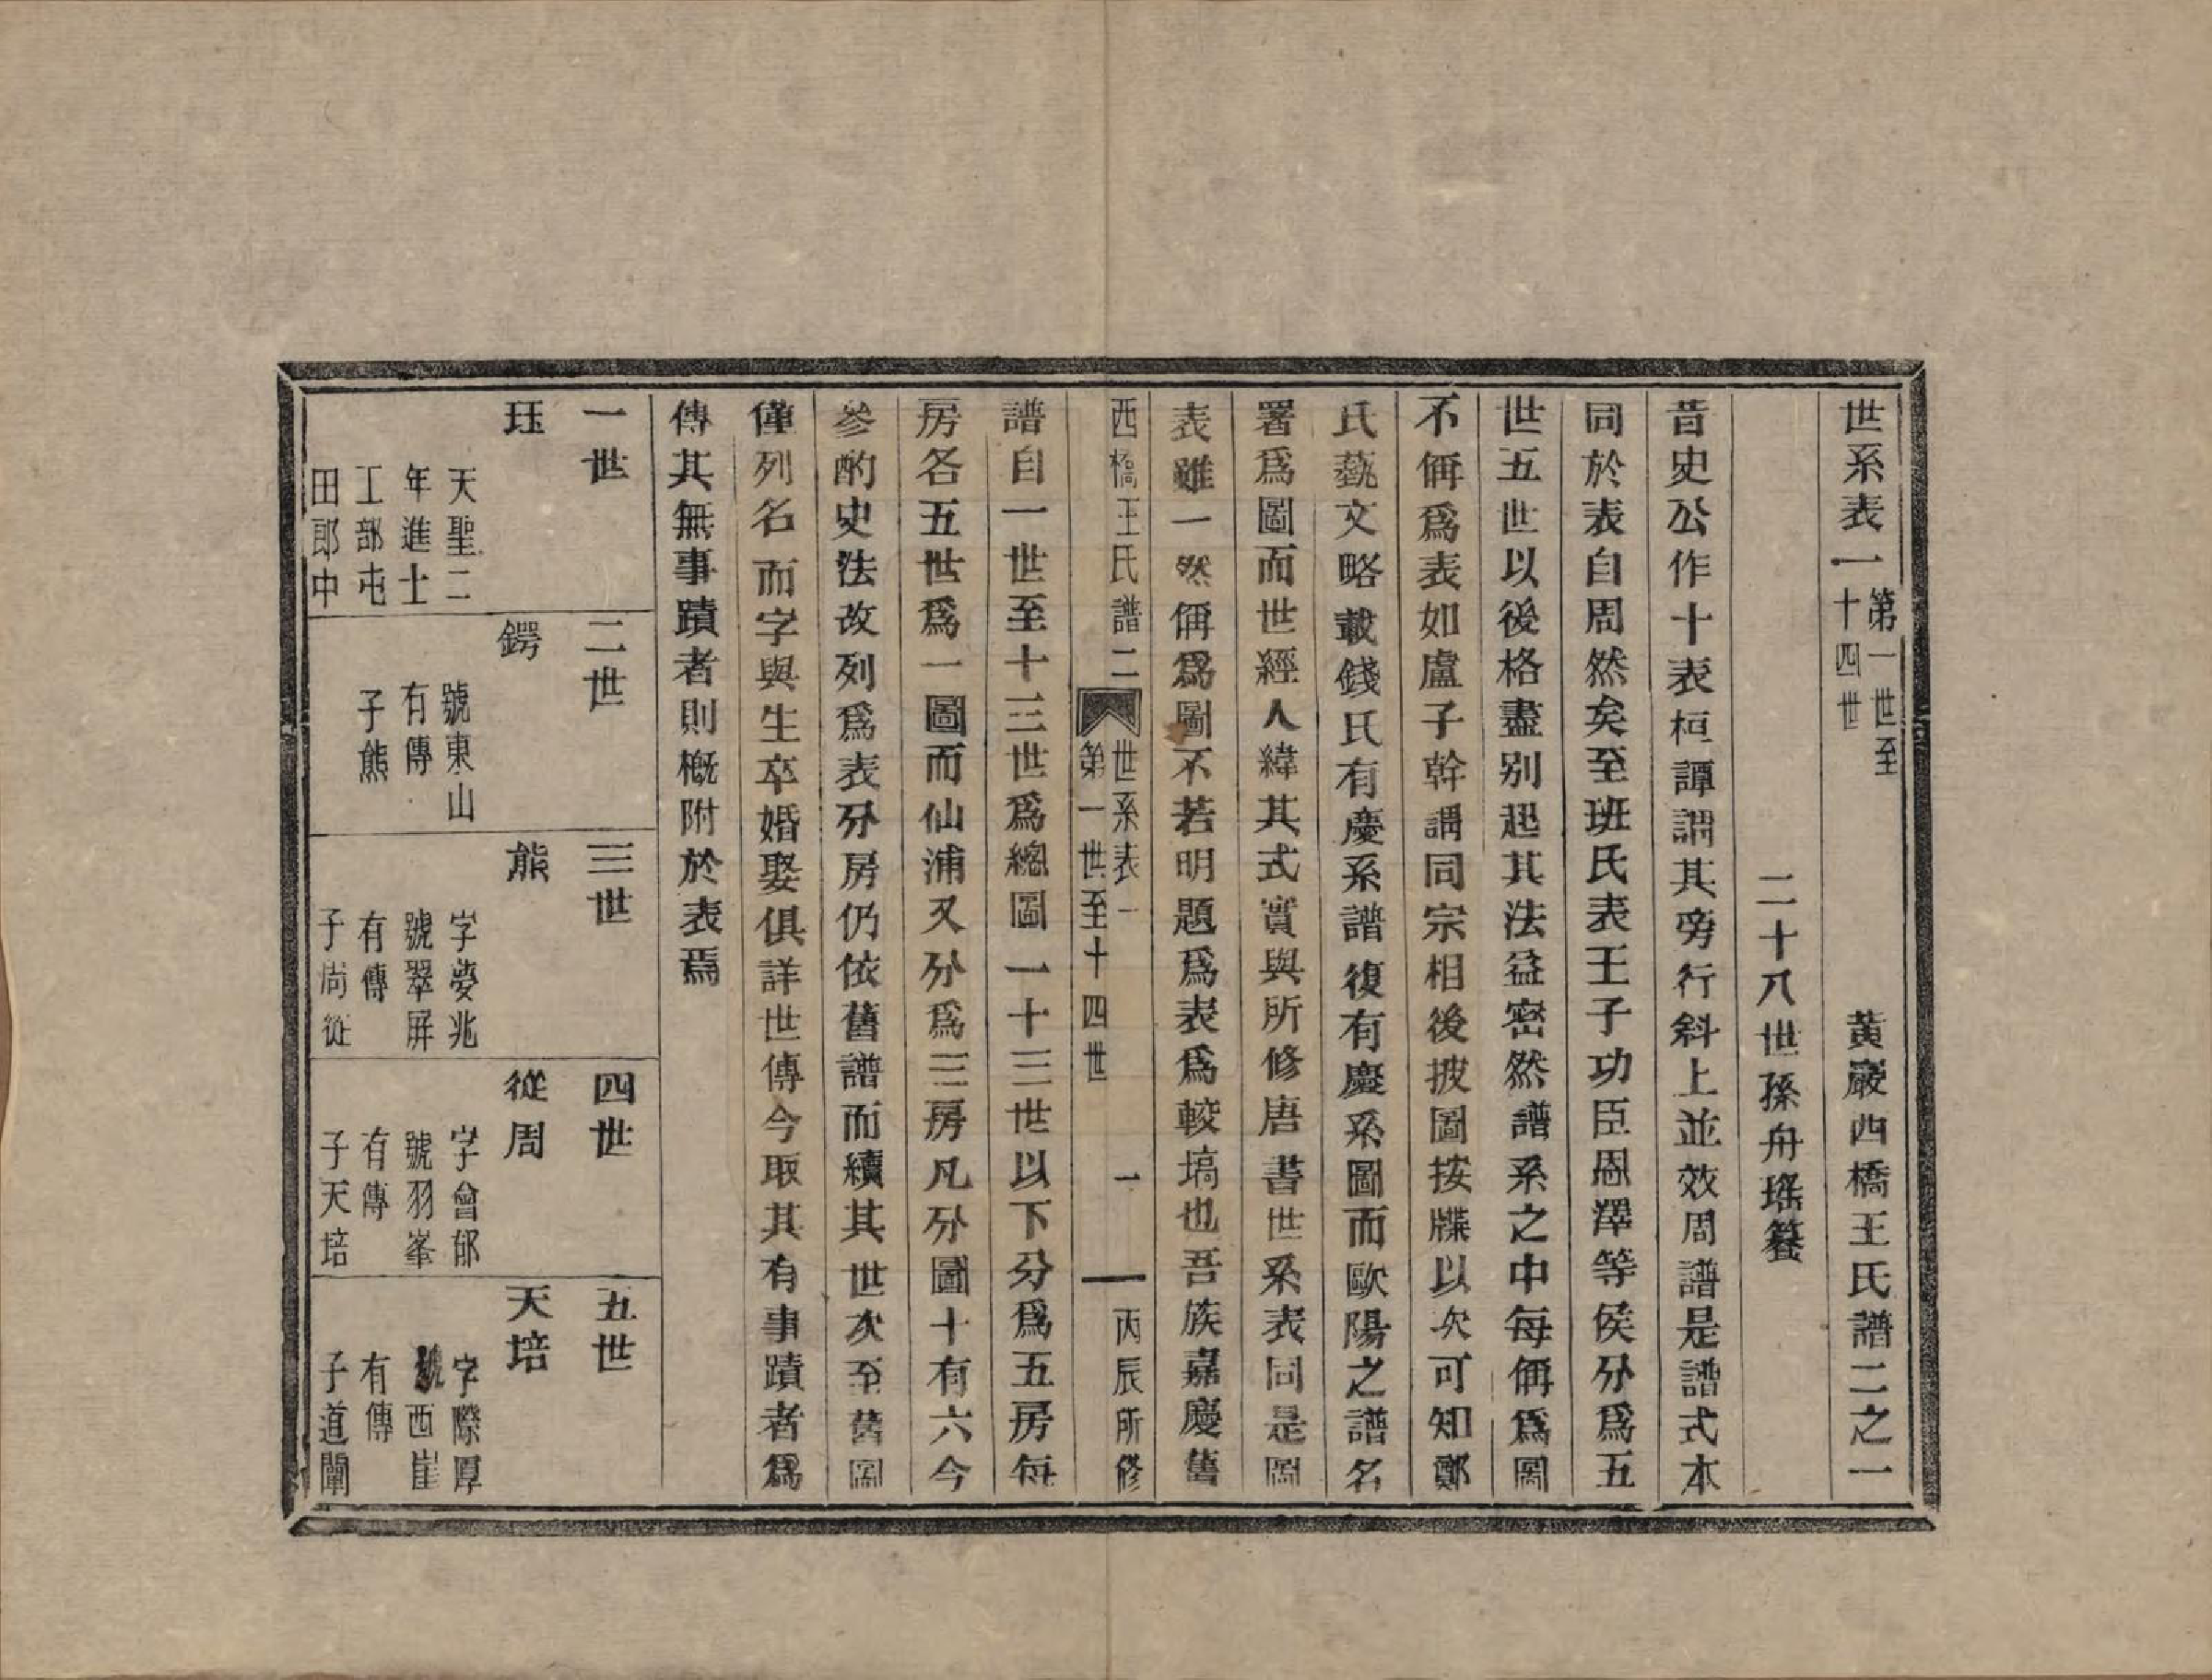 世系表一第一世至十四世　黃巖西橋王氏譜二之一
二十八世孫舟瑤簒
昔史公作十表桓譚謂其旁行斜上並效周譜是譜式本
同於表自周然矣至班氏表王子功臣恩澤等侯分爲五
世五世以後格盡别起其法益密然譜系之中每偁爲圖
不偁爲表如盧子幹謂同宗相後披圖按牒以次可知鄭
氏藝文略載錢氏有慶系譜復有慶系圖而歐陽之譜名
署爲圖而世經人緯其式實與所修唐書世系表同是圖
表雖一然偁爲圖不若明題爲表爲較塙也吾族嘉慶舊
西橋王氏譜二　世系表一　第一世至十四世　一　丙辰所修
譜自一世至十三世爲總圖一十三世以下分爲五房每
房各五世爲一圖而仙浦又分爲三房凡分圖十有六今
參酌史法改列爲表分房仍依舊譜而續其世次至舊圖
僅列名而字與生卒婚娶俱詳世傳今取其有事蹟者爲
傳其無事蹟者則概附於表焉
一世　二世　三世　四世　五世
珏
天聖二
年進士
工部屯
田郎中
鍔
號東山
有傳
子熊
熊
字夢兆
號翠屏
有傳
子尚從
從周
字會郁
號羽峯
有傳
子天培
天培
字際厚
號西崖
有傳
子道闡